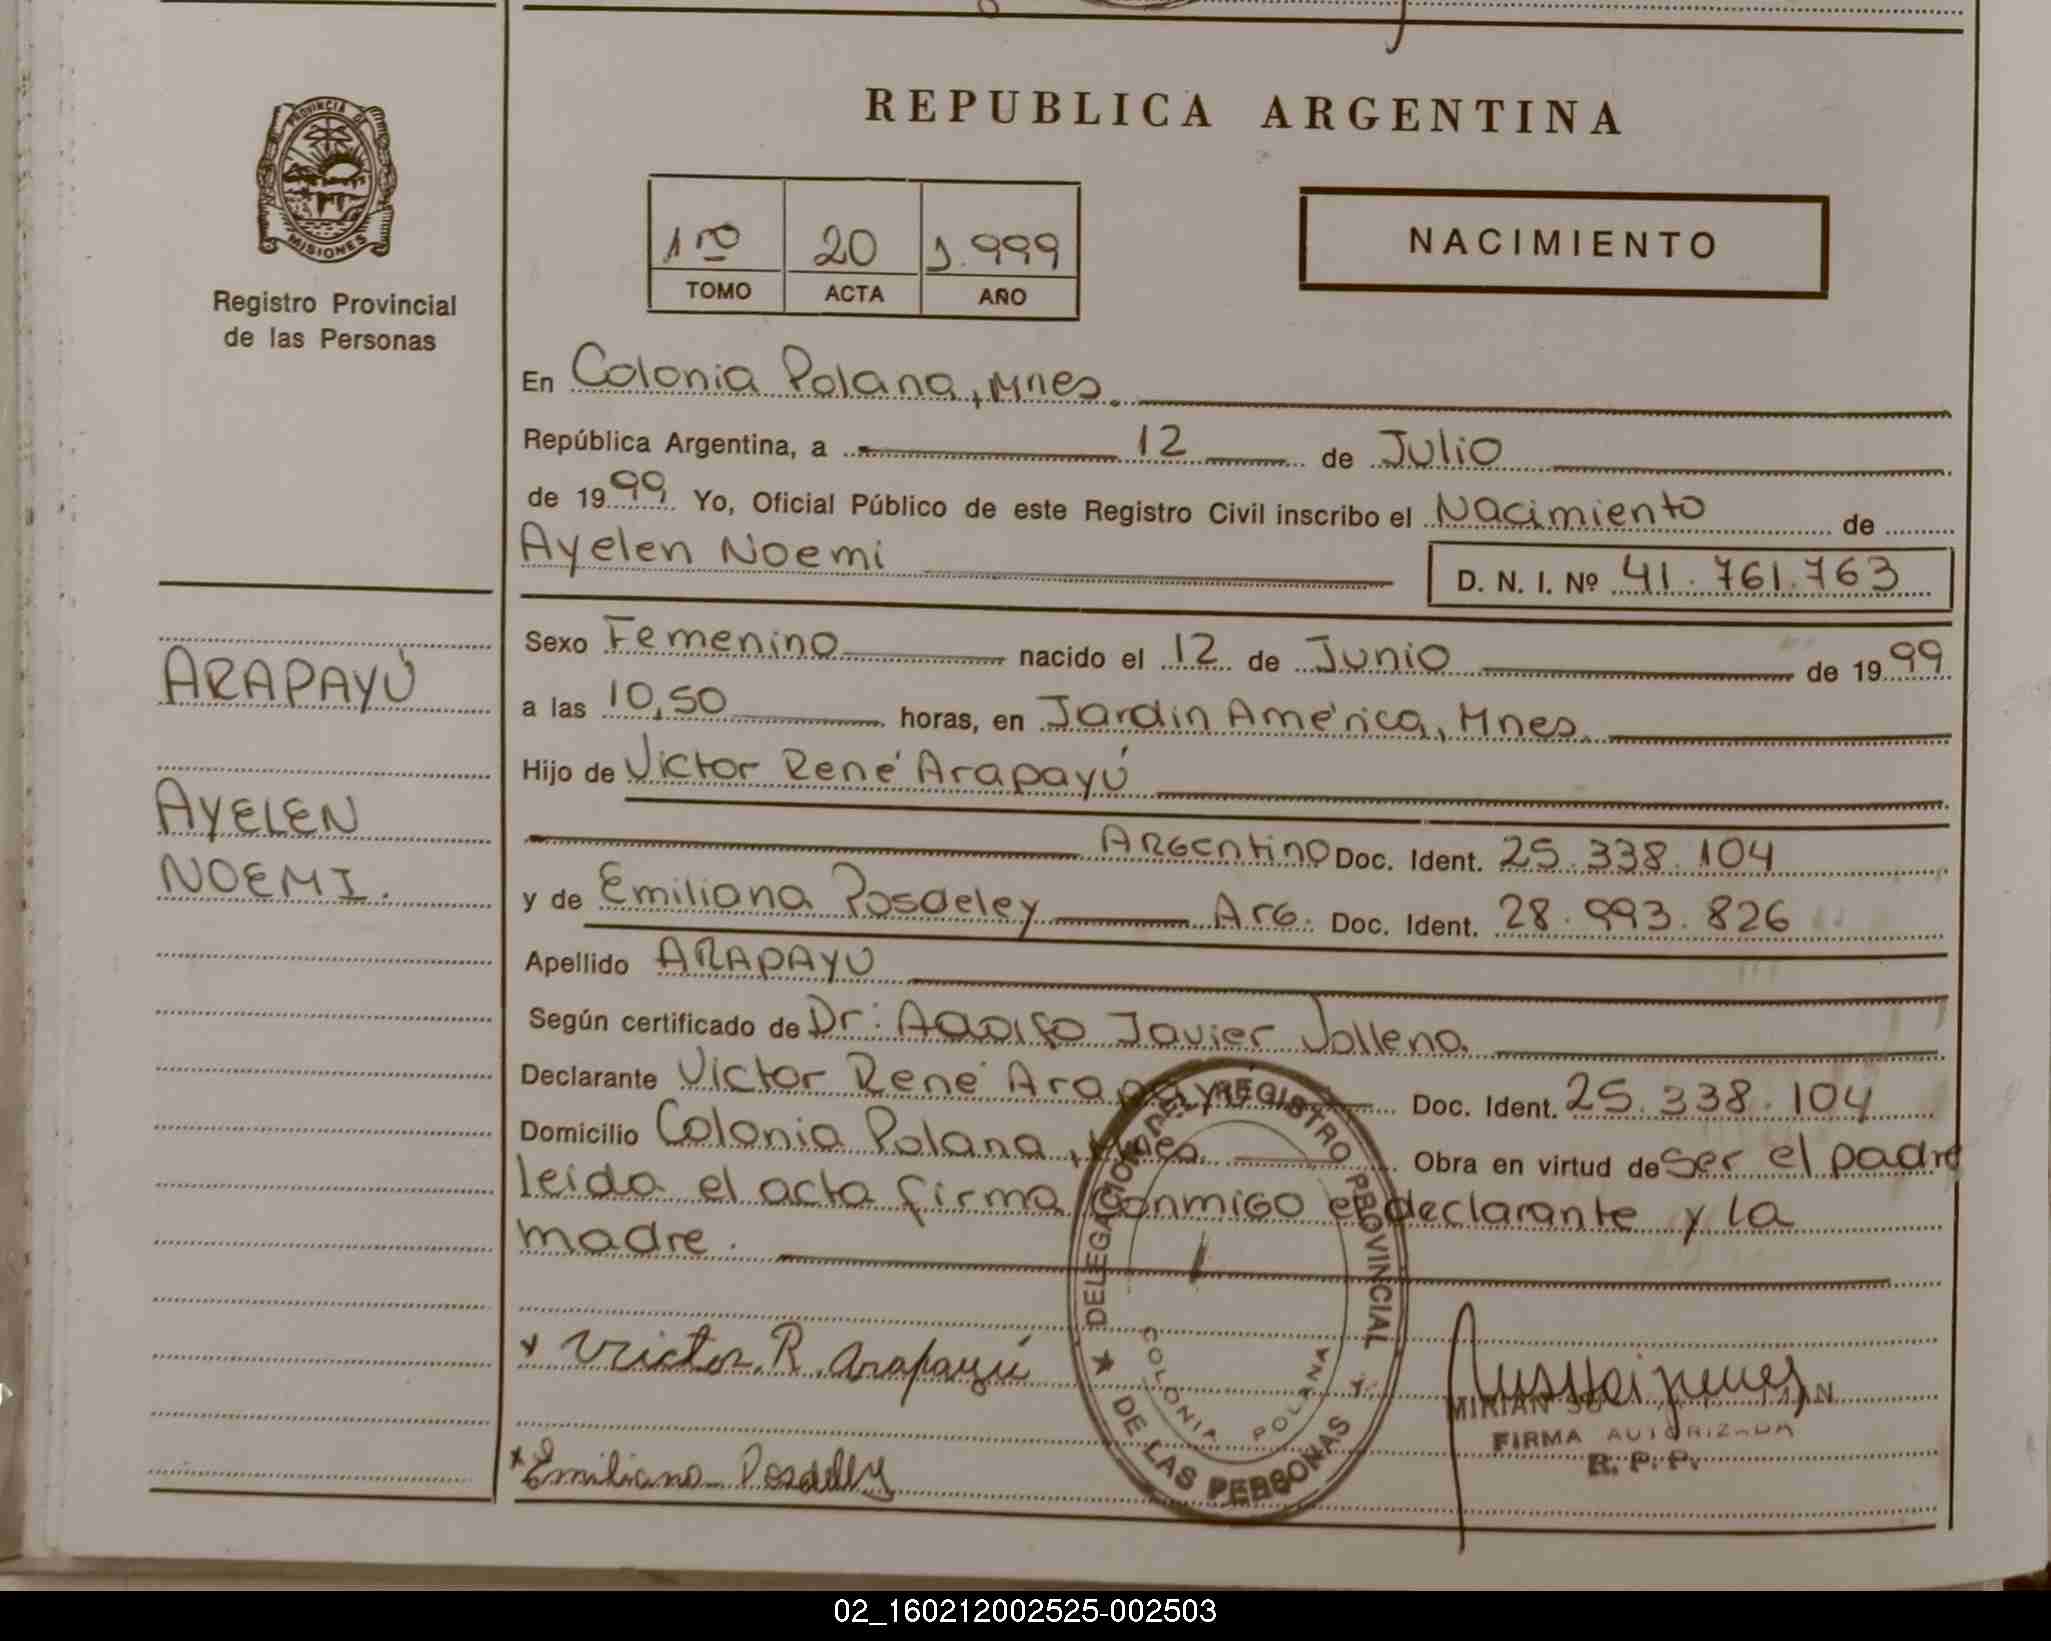 PROVINCIA DE
MISIONES
Registro Provincial
de las Personas
ARAPAYÚ
AYELEN
NOEMI.
REPUBLICA ARGENTINA
1ro 20 1.999
TOMO ACTA AÑO
NACIMIENTO
En Colonia Polana, Mnes.
República Argentina, a 12 de Julio
de 1999 Yo, Oficial Público de este Registro Civil inscribo el Nacimiento de
Ayelen Noemi D. N. I. Nº 41.761.763
Sexo Femenino nacido el 12 de Junio de 1999
a las 10,50 horas, en Jardin América, Mnes.
Hijo de Victor René Arapayú
Argentino Doc. Ident. 25.338.104
y de Emiliana Posdeley Arg. Doc. Ident. 28.993.826
Apellido ARAPAYU
Según certificado de Dr: Adolfo Javier
Declarante Victor René Arapayú Doc. Ident. 25.338.104
Domicilio Colonia Polana, Mnes Obra en virtud de ser el padre
leida el acta firma conmigo el declarante y la
madre.
DELEGACION DEL REGISTRO PROVINCIAL
DE LAS PERSONAS
COLONIA POLANA
Victor R. Arapayú
Emiliana Posdeley
MIRIAN
FIRMA AUTORIZADA
R. P. P.
02_160212002525-002503